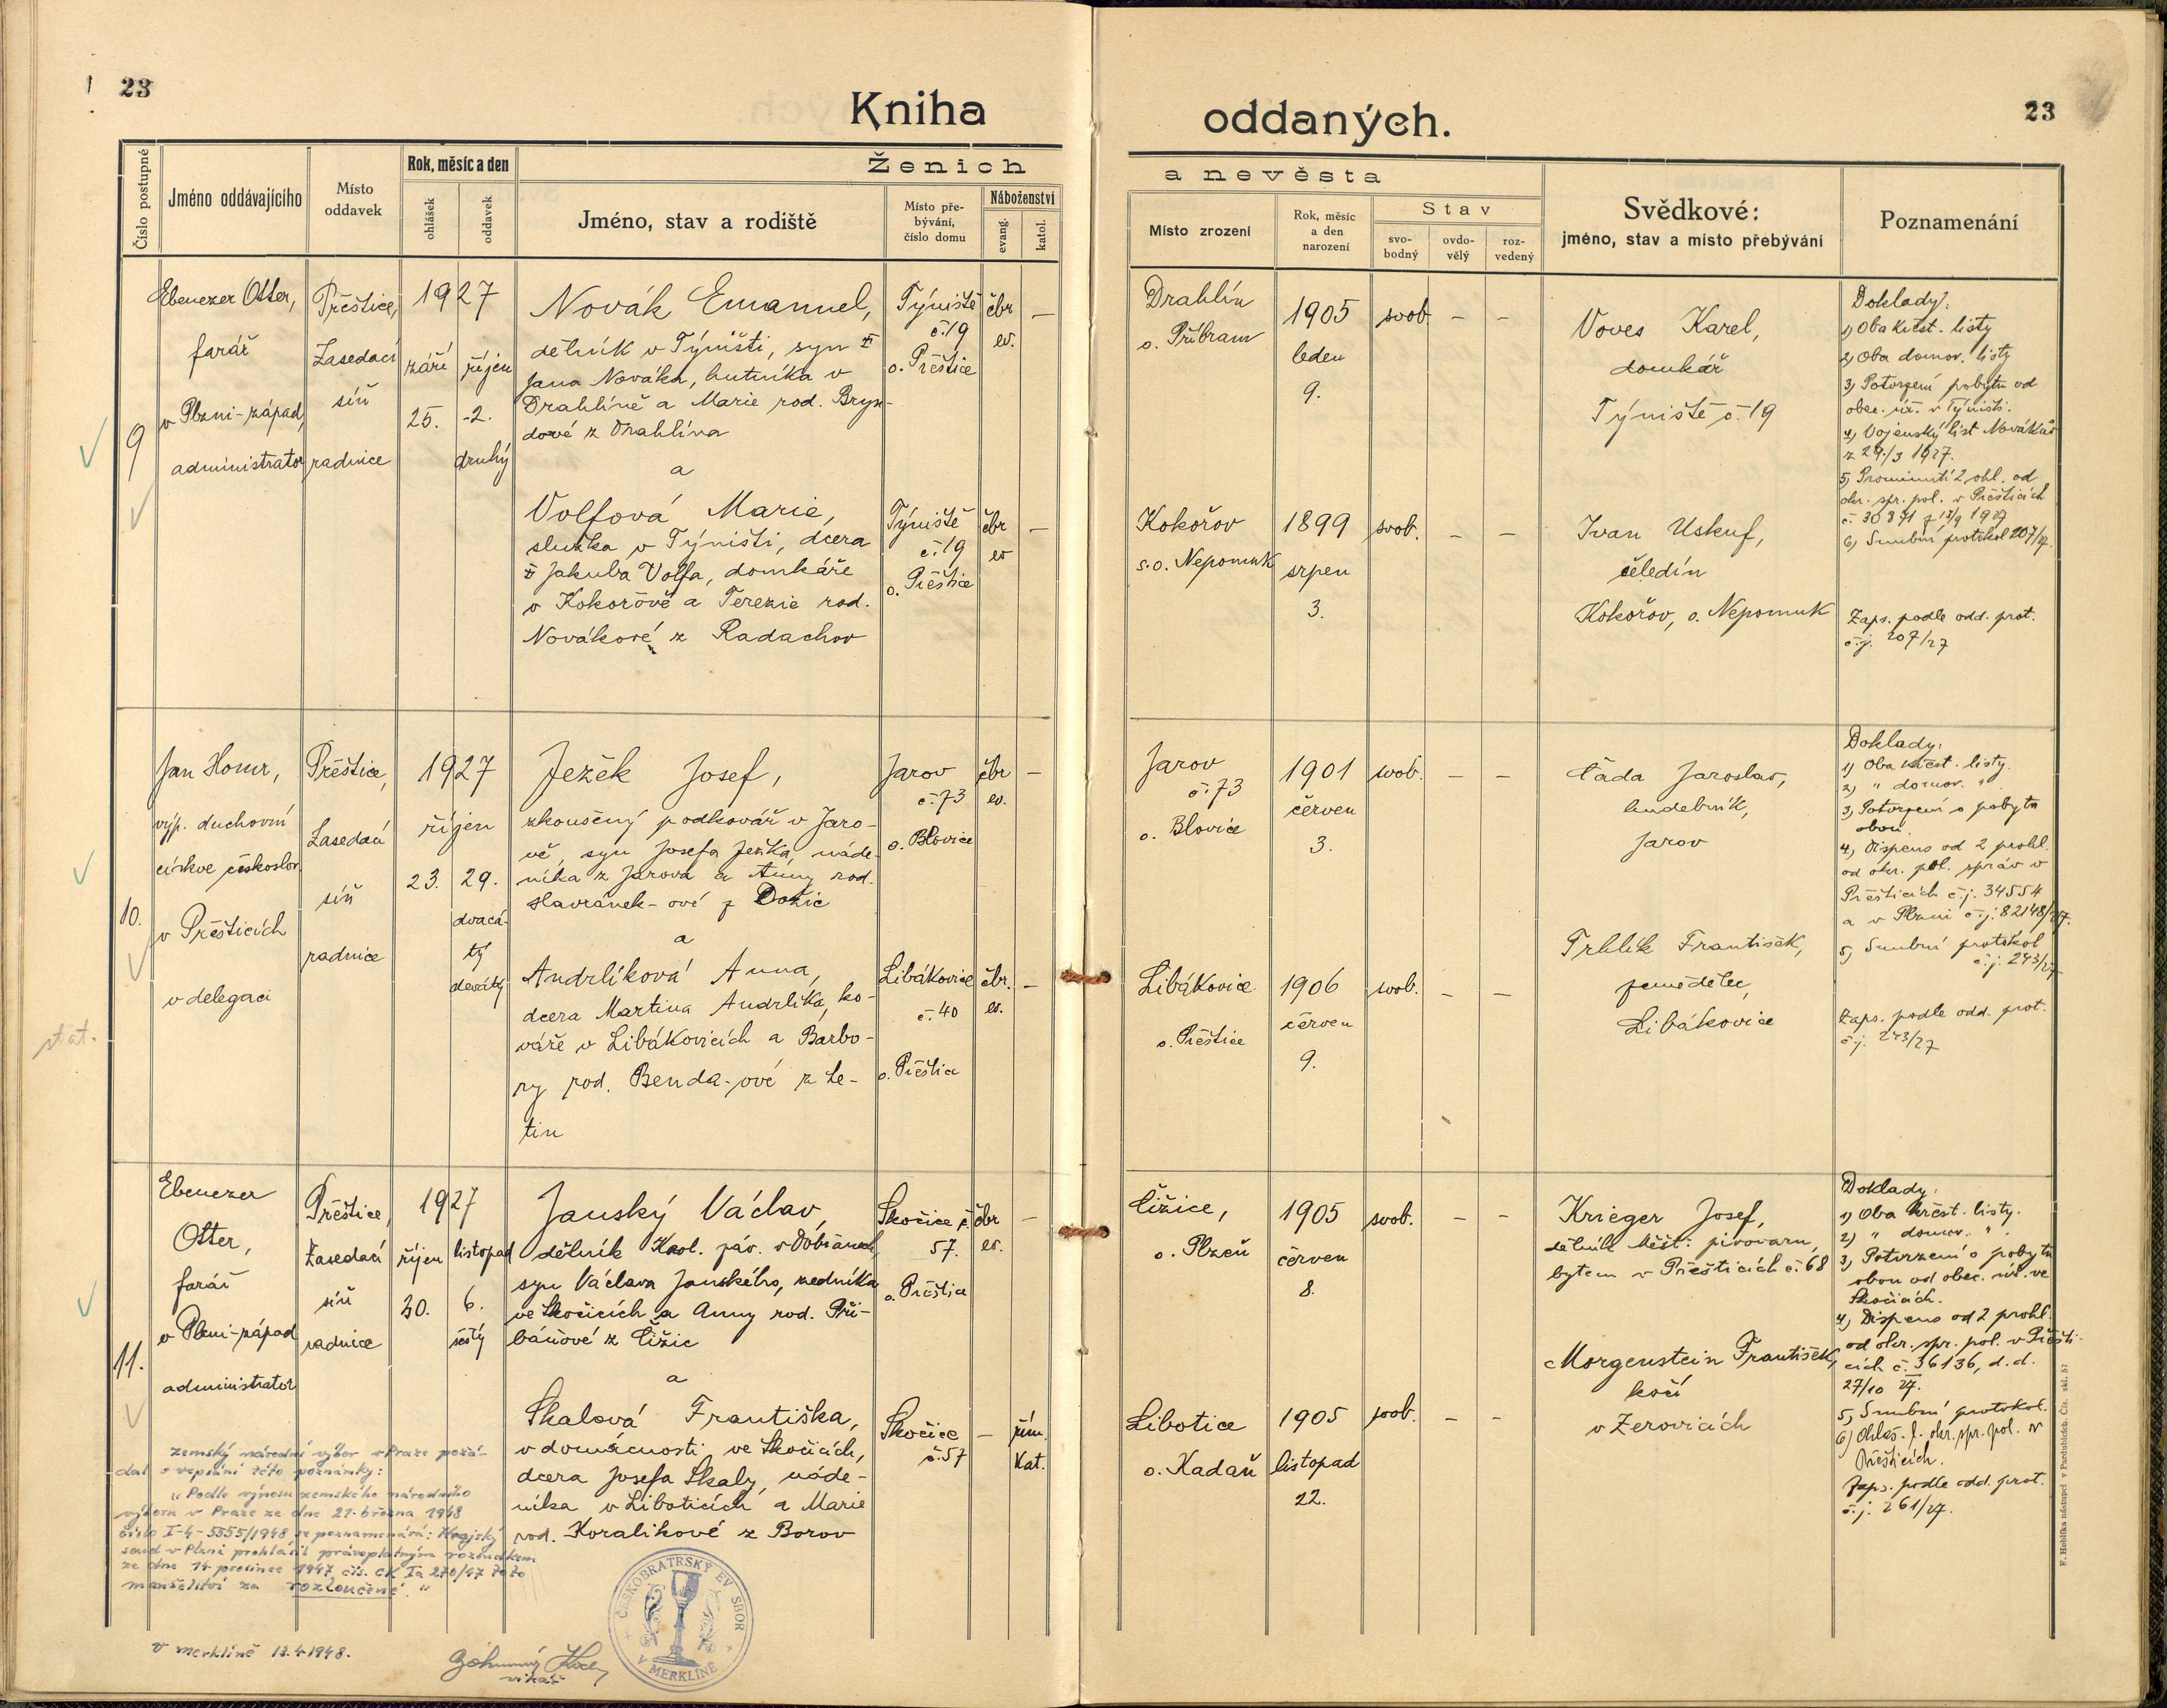 23
Kniha
oddaných.
23
Číslo postupné
Jméno oddávajícího
Místo
oddavek
Rok, měsíc a den
ohlášek
oddavek
Ženich
Jméno, stav a rodiště
Místo pře-
bývání,
číslo domu
Náboženství
evang.
katol.
a nevěsta
Místo zrození
Rok, měsíc
a den
narození
Stav
svo-
bodný
ovdo-
vělý
roz-
vedený
Svědkové:
jméno, stav a místo přebývání
Poznamenání
9
Ebenezer Otter,
farář
v Plzni-západ,
administrator
Přeštice,
Zasedací
síň
radnice
1927
září
25.
říjen
2.
druhý
Novák Emanuel,
dělník v Týništi, syn
Jana Nováka, hutníka v
Drahlíně a Marie rod. Bryn-
dové z Drahlína
a
Volfová Marie,
služka v Týništi, dcera
Jakuba Volfa, domkáře
v Kokořově a Terezie rod.
Novákové z Radachov
Týniště
č. 19
o. Přeštice
čbr
ev.
—
Týniště
č. 19
o. Přeštice
čbr
ev
—
Drahlín
o. Příbram
1905
leden
9.
svob. – –
Kokořov
s.o. Nepomuk
1899
srpen
3.
svob. – –
Voves Karel,
domkář
Týniště č. 19
Ivan Uskuf,
čeledín
Kokořov, o. Nepomuk
Doklady:
1) Oba křest. listy
2) Oba domov. listy
3) Potvrzení pobytu od
obec. úř. v Týništi.
4) Vojenský list Novákův
z 29./3 1927.
5) Prominutí 2 ohl. od
okr. spr. pol. v Přešticích
6) Snubní protokol 207/27.
Zaps. podle odd. prot.
č.j. 207/27
10.
Jan Homr,
výp. duchovní
církve českoslov.
v Přešticích
v delegaci
Přeštice,
Zasedací
síň
radnice
1927
říjen
23. 29.
dvacá-
tý
devátý
Ježek Josef,
zkoušený podkovář v Jaro-
vě, syn Josefa Ježka, náde-
níka z Jarova a Anny rod.
Havránek-ové z Dožic
a
Andrlíková Anna,
dcera Martina Andrlíka, ko-
váře v Libákovicích a Barbo-
ry rod. Benda-ové z Le-
tin
Jarov
č. 73
o. Blovice
čbr
ev.
—
Libákovice
č. 40
o. Přeštice
čbr.
ev.
—
Jarov
č. 73
o. Blovice
1901
červen
3.
svob. – –
Libákovice
o. Přeštice
1906
červen
9.
svob. – –
Čada Jaroslav,
hudebník,
Jarov
Trhlík František,
zemědělec,
Libákovice
Doklady:
1) Oba křest. listy.
2) " domov. "
3) Potvrzení o pobytu
obou.
4) Dispens od 2 prohl.
od okr. pol. správ v
Přešticích č.j. 34554
a v Plzni č.j. 82148/27.
5) Snubní protokol
č.j. 243/27
Zaps. podle odd. prot.
č.j. 243/27
stat.
11.
Ebenezer
Otter,
farář
v Plzni-západ
administrator
Přeštice,
Zasedací
síň
radnice
1927
říjen
30.
listopad
6.
šestý
Janský Václav,
dělník Kaol. záv. v Dobřanech,
syn Václava Janského, zedníka
ve Skočicích a Anny rod. Při-
báňové z Čižic
a
Skalová Františka,
v domácnosti ve Skočicích,
dcera Josefa Skaly, náde-
níka v Liboticích a Marie
rod. Koralikové z Borov
Skočice č.
57.
o. Přeštice
čbr
ev.
—
Skočice
č. 57
—
řím.
kat.
Čižice,
o. Plzeň
1905
červen
8.
svob. – –
Libotice
o. Kadaň
1905
listopad
22.
svob. – –
Krieger Josef,
dělník Měšť. pivovaru,
bytem v Přešticích č. 68
Morgenstein František,
kočí
v Žerovicích
Doklady:
1) Oba křest. listy.
2) " domov. "
3) Potvrzení o pobytu
obou od obec. úř. ve
Skočicích.
4) Dispens od 2 prohl.
od okr. spr. pol. v Přešti-
cích č. 36136, d.d.
27/10 27.
5) Snubní protokol.
6) Ohláš. l. okr. spr. pol. v
Přešticích.
Zaps. podle odd. prot.
č.j. 261/27.
zemský národní výbor v Praze požá-
dal o vepsání této poznámky:
„Podle výnosu zemského národního
výboru v Praze ze dne 21. března 1948
číslo I-4-5555/1948 se poznamenává: Krajský
soud v Plzni prohlásil právoplatným rozsudkem
ze dne 14. prosince 1947, čís. CK Ia 270/47 toto
manželství za rozloučené."
V Merklíně 13.4.1948.
vikář
ČESKOBRATRSKÝ EV. SBOR
V MERKLÍNĚ
F. Hoblíka nástupci v Pardubicích. Čís. skl. 57